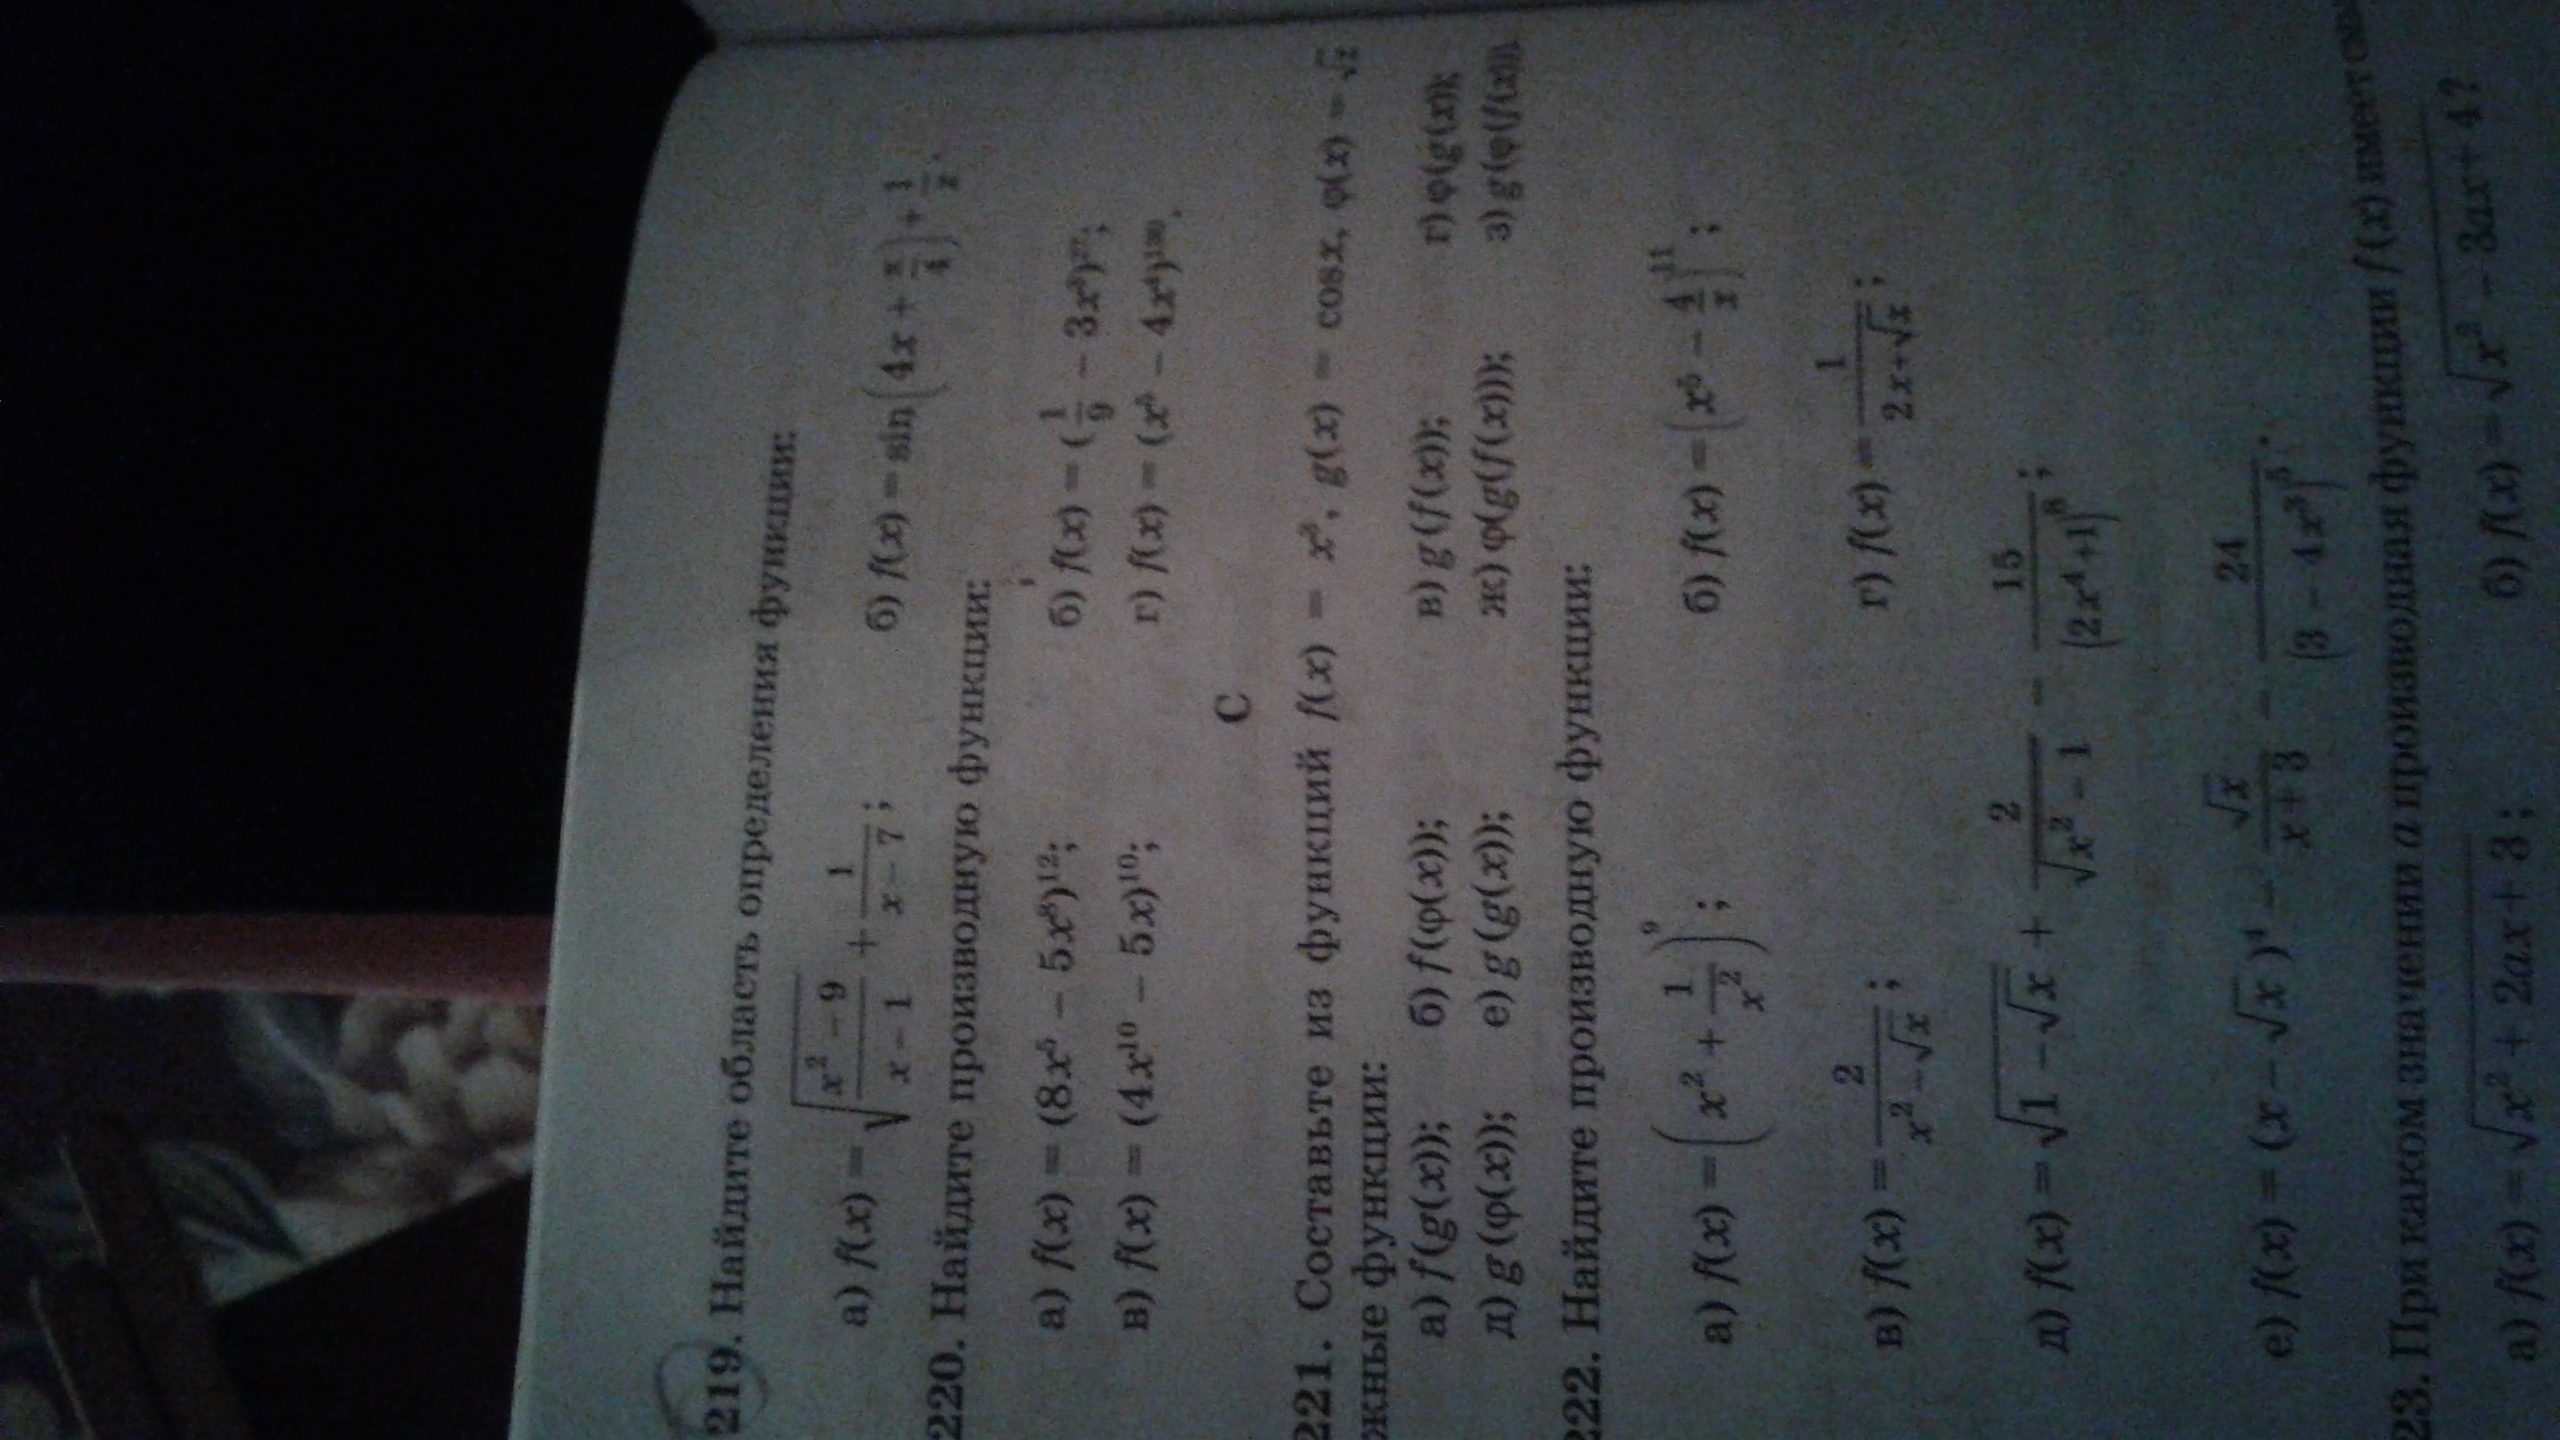 219. Найдите область определения функции:
а) f(x) = √((x² − 9)/(x − 1)) + 1/(x − 7); б) f(x) = sin(4x + π/4) + 1/x.
220. Найдите производную функции:
а) f(x) = (8x⁵ − 5x⁸)¹²; б) f(x) = (1/9 − 3x³)²⁷;
в) f(x) = (4x¹⁰ − 5x)¹⁰; г) f(x) = (x⁵ − 4x⁴)¹³⁰.
С
221. Составьте из функций f(x) = x³, g(x) = cosx, φ(x) = √x
жные функции:
а) f(g(x)); б) f(φ(x)); в) g(f(x)); г) φ(g(x));
д) g(φ(x)); е) g(g(x)); ж) φ(g(f(x))); з) g(φ(f(x))).
222. Найдите производную функции:
а) f(x) = (x² + 1/x²)⁹; б) f(x) = (x⁵ − 4/x)¹¹;
в) f(x) = 2/(x² − √x); г) f(x) = 1/(2x+√x);
д) f(x) = √(1 − √x) + 2/√(x² − 1) − 15/(2x⁴+1)⁸;
е) f(x) = (x − √x)⁴ − √x/(x + 3) − 24/(3 − 4x³)⁵.
23. При каком значении a производная функции f(x) имеет
а) f(x) = √(x² + 2ax + 3); б) f(x) = √(x² − 3ax + 4)?